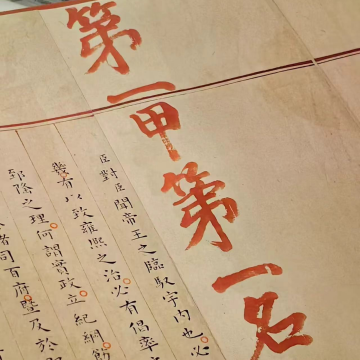 第一甲第一名
臣對臣聞帝王之臨馭宇內也必
幾有以致雍熙之治必有倡率
郅隆之理何謂實政立紀綱飭
司百府暨及於